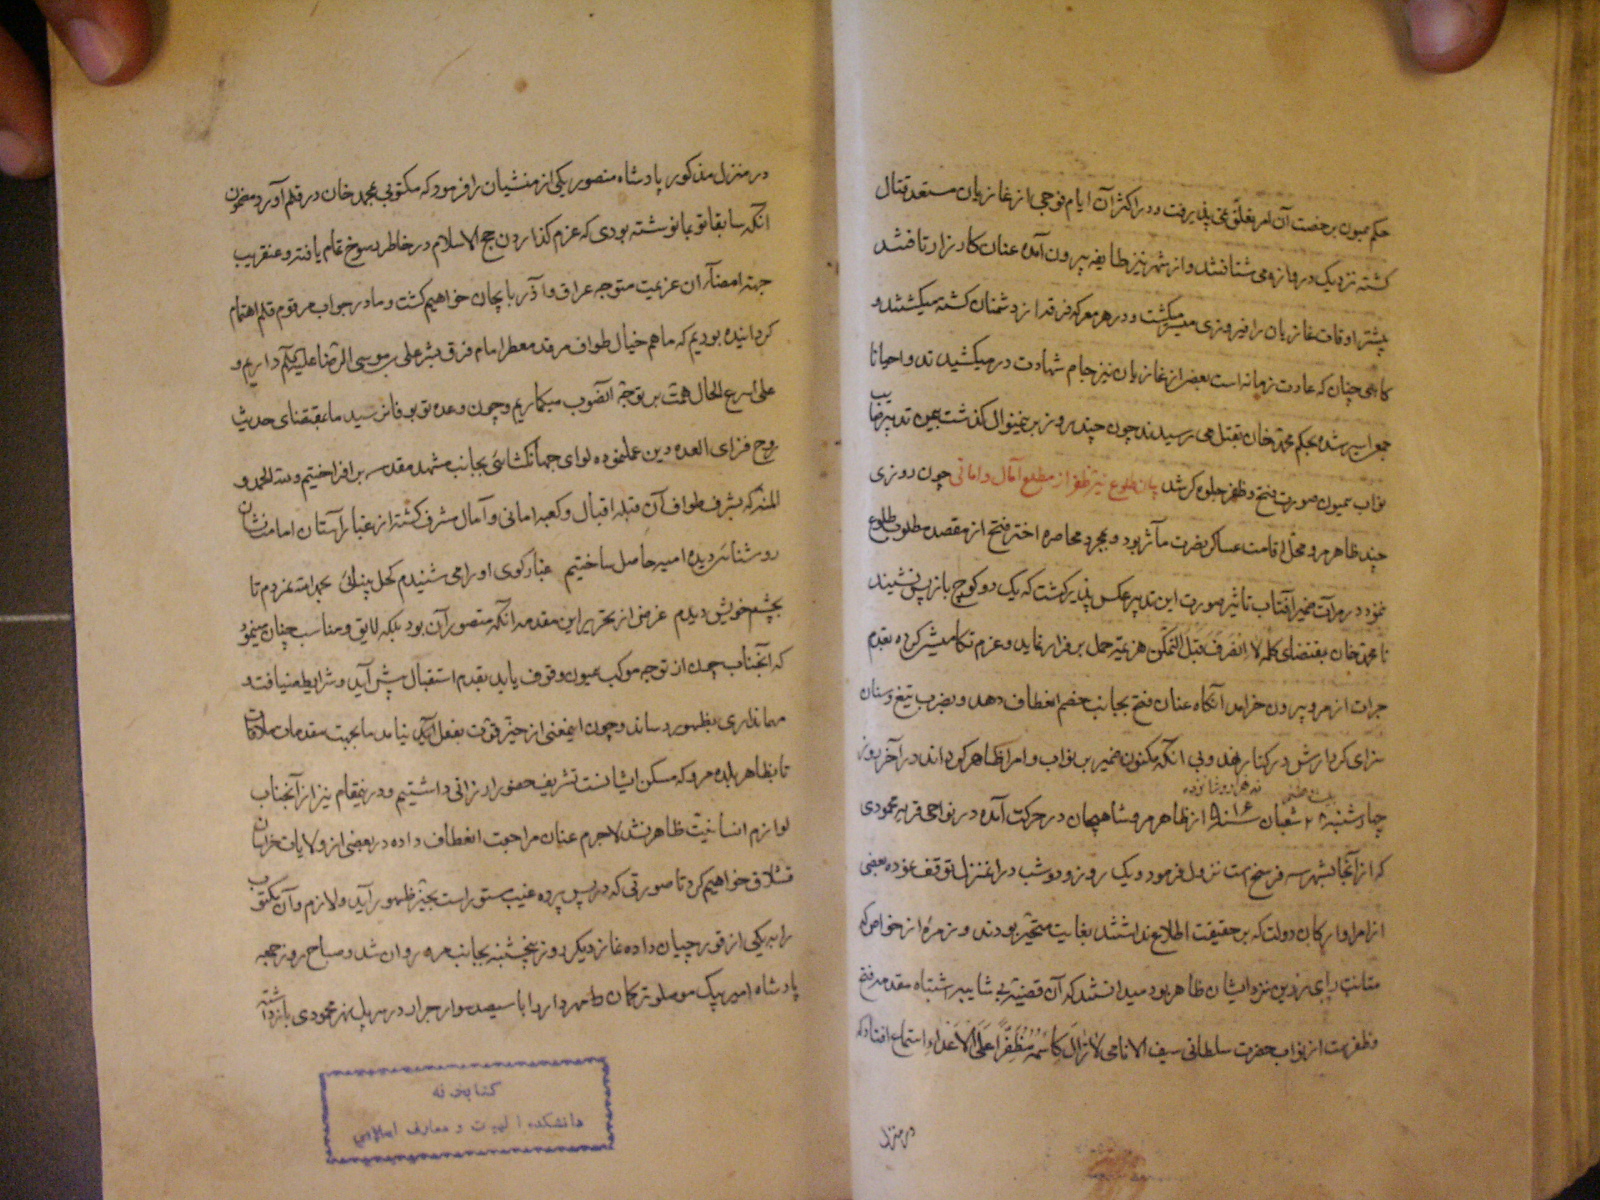 حکم همیون برخصت آن امر تعلق پذیرفت و در اکثر آن ایام فوجی از غازیان مستعد قتال
کشته نزدیک دروازه می شتافتند و از شهر نیز طایفه بیرون آمده عنان کارزار تافتند
بیشتر اوقات غازیان را فیروزی میسر میکشت و در هر معرکه فرقه از دشمنان کشته میکشتند و
کاهی چنان که عادت زمانه است بعضی از غازیان نیز جام شهادت در میکشیدند و احیانا
جمع اسیر شده بحکم محمد خان بقتل می رسیدند چون چند روز برین منوال کذشت بیمن تدبیر صایب
نواب همیون صورت فتح و ظفر جلوه کر شد بیان طلوع نیر ظفر از مطلع آمال و امانی چون روزی
چند ظاهر مرو محل اقامت عساکر نصرت مآثر بود و بمجرد محاصره اختر فتح از مقصد مطلوب طلوع
ننمود در مرآت ضمیر آفتاب تاثیر صورت این تدبیر عکس پذیر کشت که یک دو کوچ باز پس نشیند
تا محمد خان بمقتضای کلمه لا قبل التمکن هزیمة حمل بر فرار نماید و عزم تکامیشی کرده بقدم
جرات از مرو بیرون خرامد آنکاه عنان فتح بجانب خصم انعطاف دهد و بضرب تیغ و سنان
سزای کردارش در کنار نهد و بی آنکه مکنون ضمیر بر نواب و امرا ظاهر کرداند در آخر روز
چهارشنبه ۲۸ شعبان سنه ۹۱۶ از ظاهر مرو شاهجهان در حرکت آمده در نواحی قریه محمودی
که از آنجا تا شهر سه فرسخ است نزول فرمود و یک روز و دو شب در آن منزل توقف نموده بعضی
از امرا و ارکان دولت که بر حقیقت اطلاع نداشتند بغایت متحیر بودند و زمره از خواص که
متانت رای رزین نزد ایشان ظاهر بود میدانستند که آن قضیه بی شایبه اشتباه مقدمه فتح
و ظفریست از نواب حضرت سلطانی سیف الانامی لا زال کاسمه مظفرا علی الاعداء استماع افتاد که
در منزل
در منزل مذکور پادشاه منصور یکی از منشیان را فرمود که مکتوبی بمحمد خان در قلم آورد مضمون
آنکه سابقا تو بما نوشته بودی که عزم کذاردن حج الاسلام در خاطر رسوخ تمام یافته و عنقریب
جهة امضاء آن عزیمت متوجه عراق و آذربایجان خواهیم کشت و ما در جواب مرقوم قلم اهتمام
کردانیده بودیم که ما هم خیال طواف مرقد معطر امام علی بن موسی الرضا علیه داریم و
علی اسرع الحال همت بر توجه آنصوب میکماریم و چون وعده تو بوفا نرسید ما بمقتضای حدیث
روح فزای العدة دین عمل نموده لوای جهانکشائی بجانب مشهد مقدسه برافراختیم و لله الحمد و
المنه که بشرف طواف آن قبله اقبال و کعبه امانی و آمال مشرف کشته از غبار آستان امامت نشان
روشنائی دیده امید حاصل ساختیم غبار کوی او را می شنیدم کحل بینائی بحمد الله نمردم تا
بچشم خویش دیدم غرض از تحریر این مقدمه آنکه متصور آن بود بلکه لایق و مناسب چنان مینمود
که آنجناب چون از توجه موکب همیون وقوف یابد بقدم استقبال پیش آید و شرایط ضیافت و
مهمانداری بظهور رساند و چون اینمعنی از حیز قوت بفعل نیامد ما بجهت مقدمات ملاقات
تا بظاهر بلده مرو که مسکن ایشانست تشریف حضور ارزانی داشتیم و درینمقام نیز از آنجناب
لوازم انسانیت ظاهر نشد لاجرم عنان مراجعت انعطاف داده در بعضی از ولایات خراسان
قشلاق خواهیم کرد تا صورتی که در پس پرده غیب مستور است بحیز ظهور آید و لازم و آن مکتوب
را بیکی از قورچیان داده نماز دیکر روز پنجشنبه بجانب مرو روان شد و صباح روز جمعه
پادشاه امیر بیک موصلوی ترکمان مهردار را با سیصد سوار جرار در سر پل نهر محمودی باز داشته
کتابخانه
دانشکده الهیات و معارف اسلامی